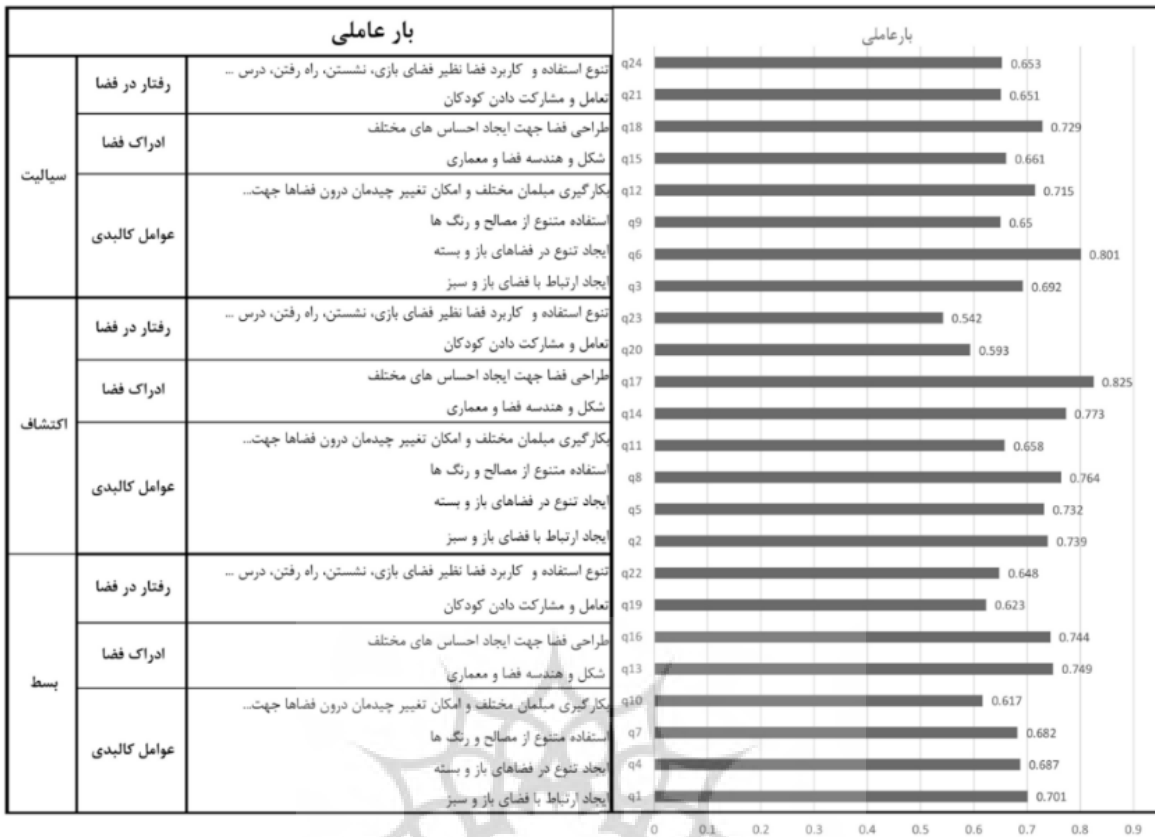 بار عاملی
بارعاملی
سیالیت
رفتار در فضا
تنوع استفاده و کاربرد فضا نظیر فضای بازی، نشستن، راه رفتن، درس ...
q24
0.653
تعامل و مشارکت دادن کودکان
q21
0.651
ادراک فضا
طراحی فضا جهت ایجاد احساس های مختلف
q18
0.729
شکل و هندسه فضا و معماری
q15
0.661
عوامل کالبدی
بکارگیری مبلمان مختلف و امکان تغییر چیدمان درون فضاها جهت...
q12
0.715
استفاده متنوع از مصالح و رنگ ها
q9
0.65
ایجاد تنوع در فضاهای باز و بسته
q6
0.801
ایجاد ارتباط با فضای باز و سبز
q3
0.692
اکتشاف
رفتار در فضا
تنوع استفاده و کاربرد فضا نظیر فضای بازی، نشستن، راه رفتن، درس ...
q23
0.542
تعامل و مشارکت دادن کودکان
q20
0.593
ادراک فضا
طراحی فضا جهت ایجاد احساس های مختلف
q17
0.825
شکل و هندسه فضا و معماری
q14
0.773
عوامل کالبدی
بکارگیری مبلمان مختلف و امکان تغییر چیدمان درون فضاها جهت...
q11
0.658
استفاده متنوع از مصالح و رنگ ها
q8
0.764
ایجاد تنوع در فضاهای باز و بسته
q5
0.732
ایجاد ارتباط با فضای باز و سبز
q2
0.739
بسط
رفتار در فضا
تنوع استفاده و کاربرد فضا نظیر فضای بازی، نشستن، راه رفتن، درس ...
q22
0.648
تعامل و مشارکت دادن کودکان
q19
0.623
ادراک فضا
طراحی فضا جهت ایجاد احساس های مختلف
q16
0.744
شکل و هندسه فضا و معماری
q13
0.749
عوامل کالبدی
بکارگیری مبلمان مختلف و امکان تغییر چیدمان درون فضاها جهت...
q10
0.617
استفاده متنوع از مصالح و رنگ ها
q7
0.682
ایجاد تنوع در فضاهای باز و بسته
q4
0.687
ایجاد ارتباط با فضای باز و سبز
q1
0.701
0 0.1 0.2 0.3 0.4 0.5 0.6 0.7 0.8 0.9